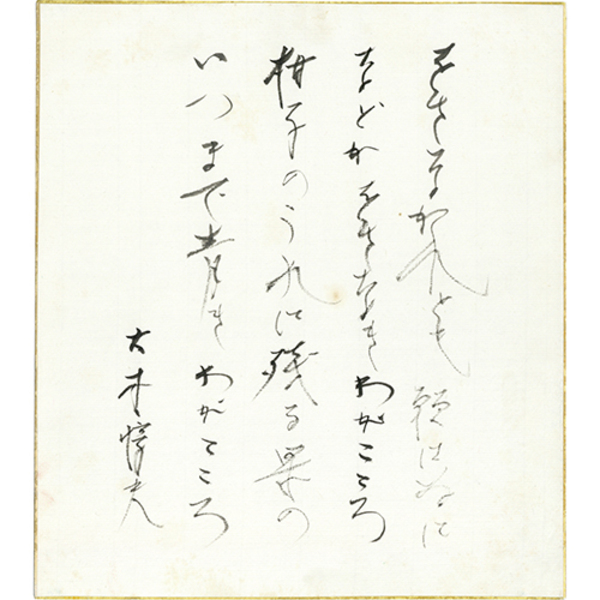 をさなかれとも 願はぬに
などかをさなき わがこころ
柑子のうれに 残る果の
いつまで青き わがこころ
大木惇夫